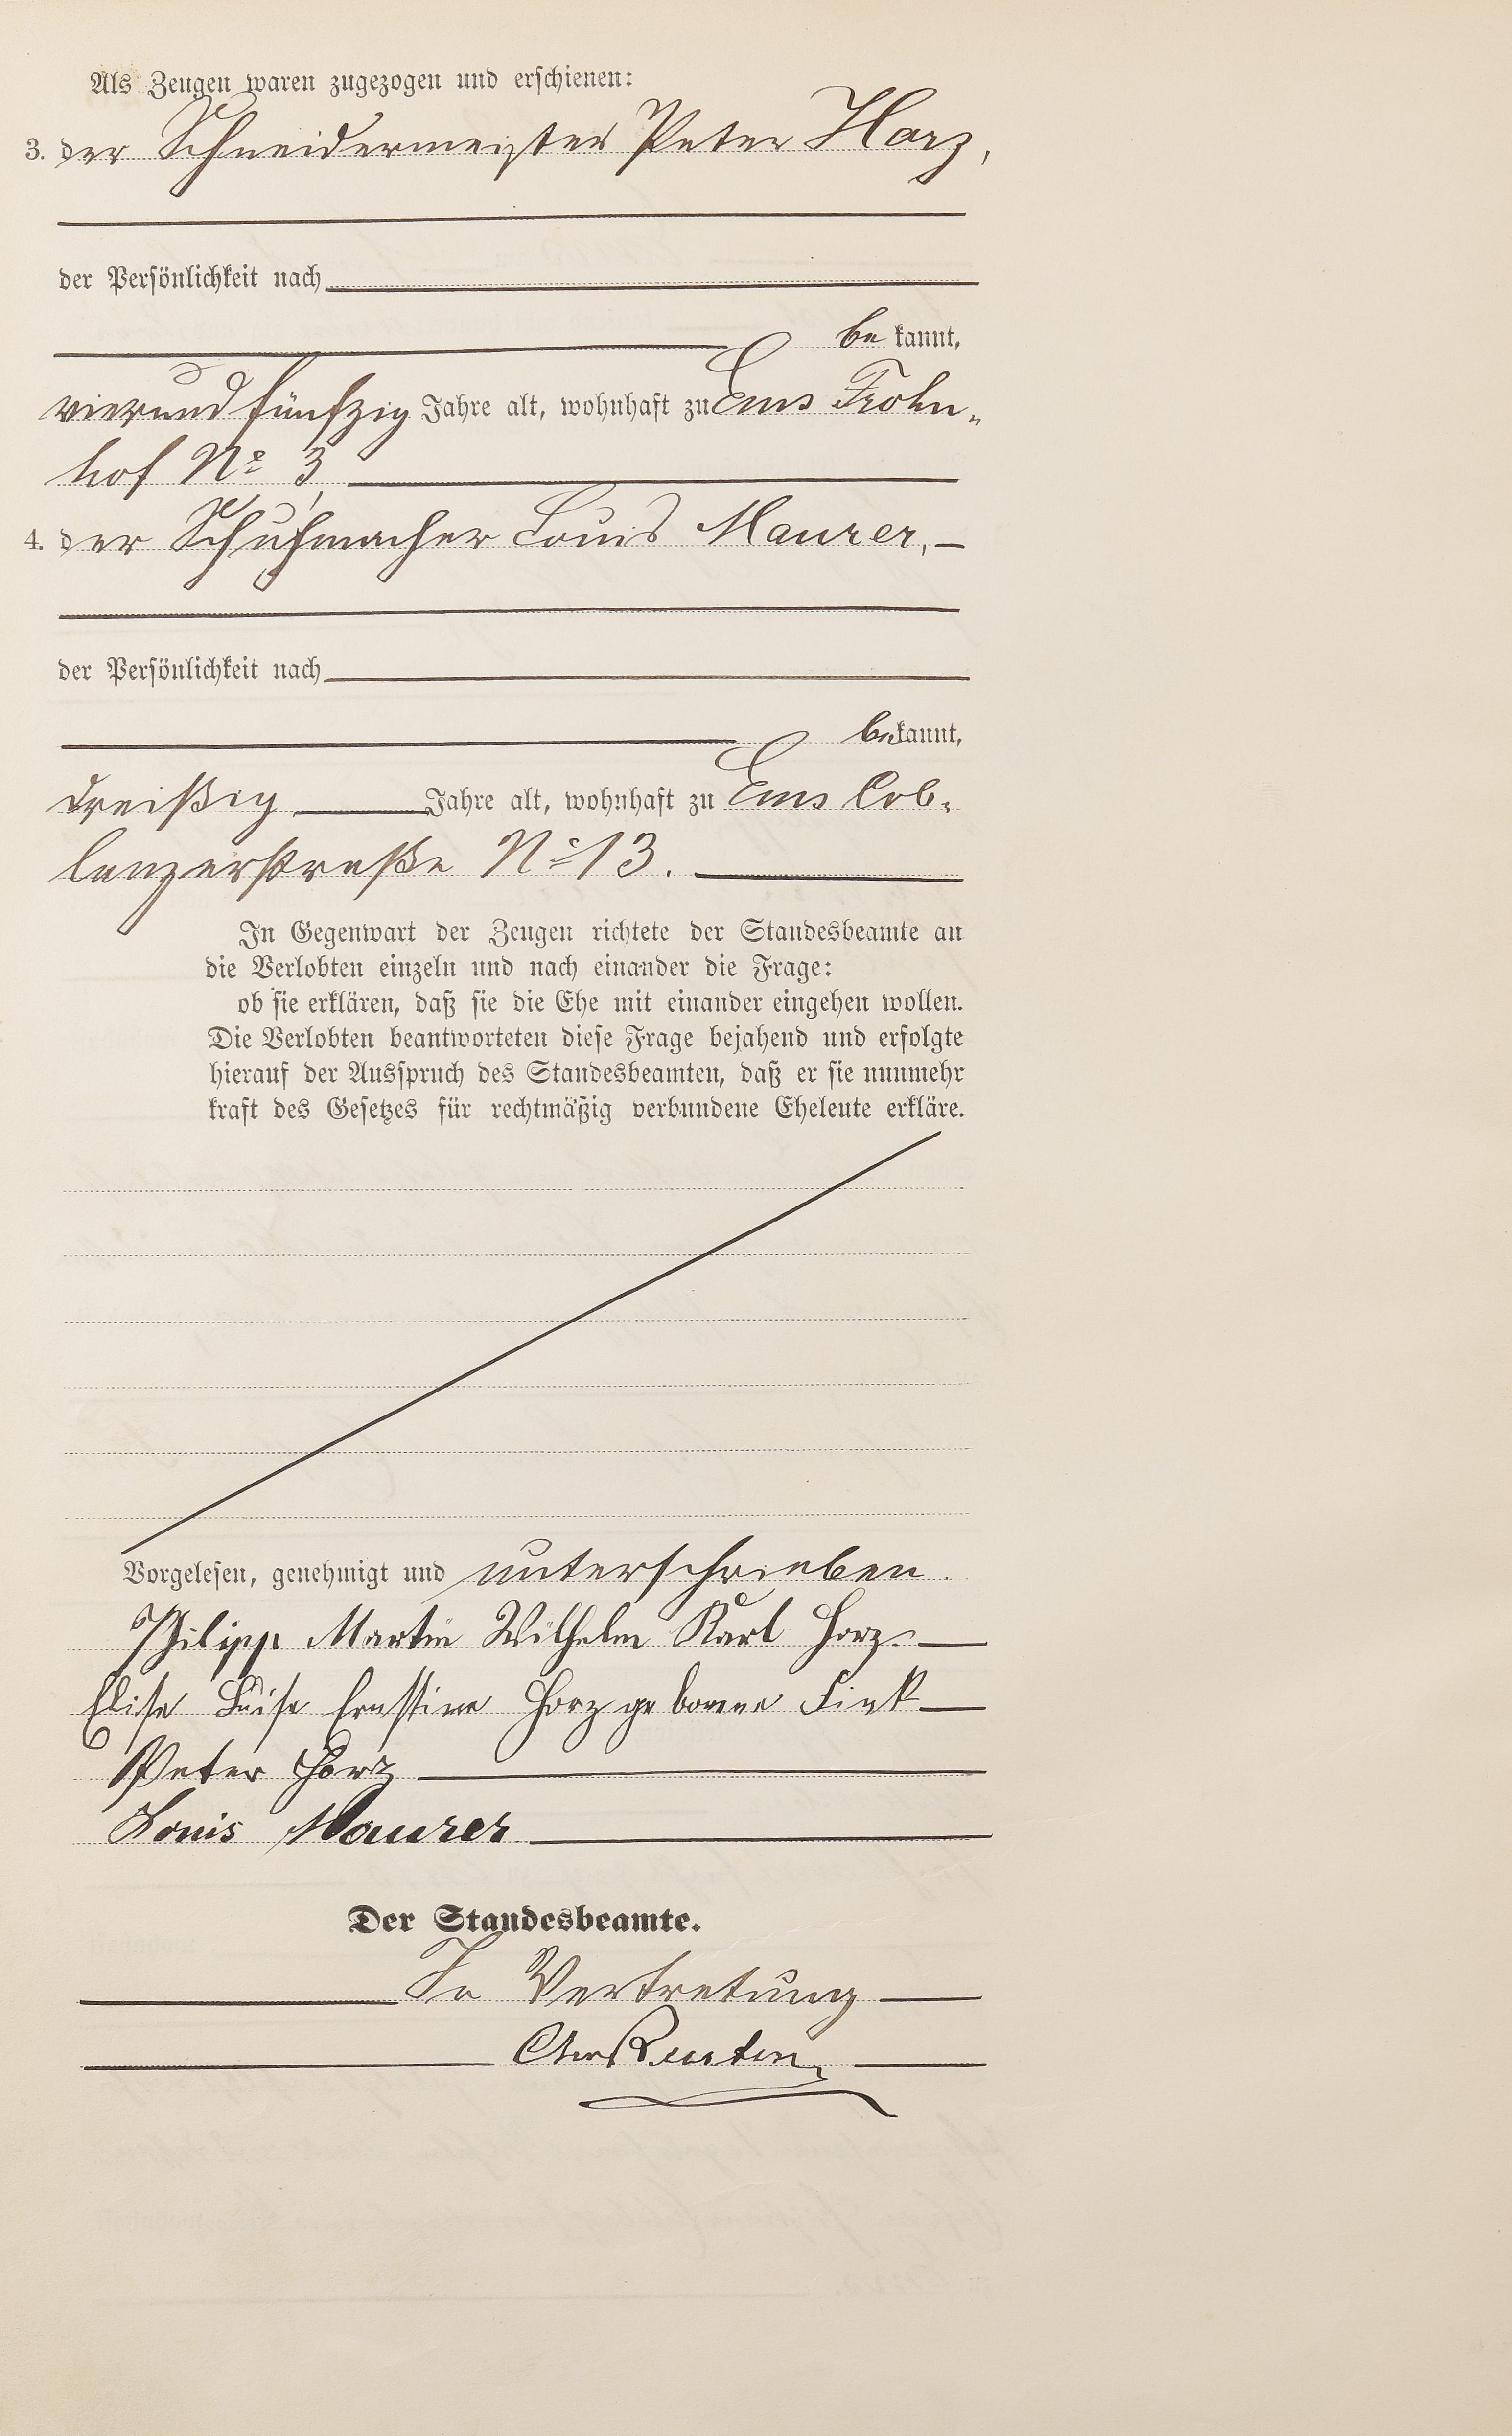 Als Zeugen waren zugezogen und erschienen:
3. der Schneidermeister Peter Horz,
der Persönlichkeit nach
be kannt,
vierundfünfzig Jahre alt, wohnhaft zu Ems Frohn-
hof No 3
4. der Schuhmacher Louis Maurer,
der Persönlichkeit nach
bekannt,
dreißig Jahre alt, wohnhaft zu Ems Cob-
lenzerstraße No 13.
In Gegenwart der Zeugen richtete der Standesbeamte an
die Verlobten einzeln und nach einander die Frage:
ob sie erklären, daß sie die Ehe mit einander eingehen wollen.
Die Verlobten beantworteten diese Frage bejahend und erfolgte
hierauf der Ausspruch des Standesbeamten, daß er sie nunmehr
kraft des Gesetzes für rechtmäßig verbundene Eheleute erkläre.
Vorgelesen, genehmigt und unterschrieben.
Philipp Martin Wilhelm Karl Horz
Elise Luise Ernstine Horz geborene Fink
Peter Horz
Louis Maurer
Der Standesbeamte.
In Vertretung